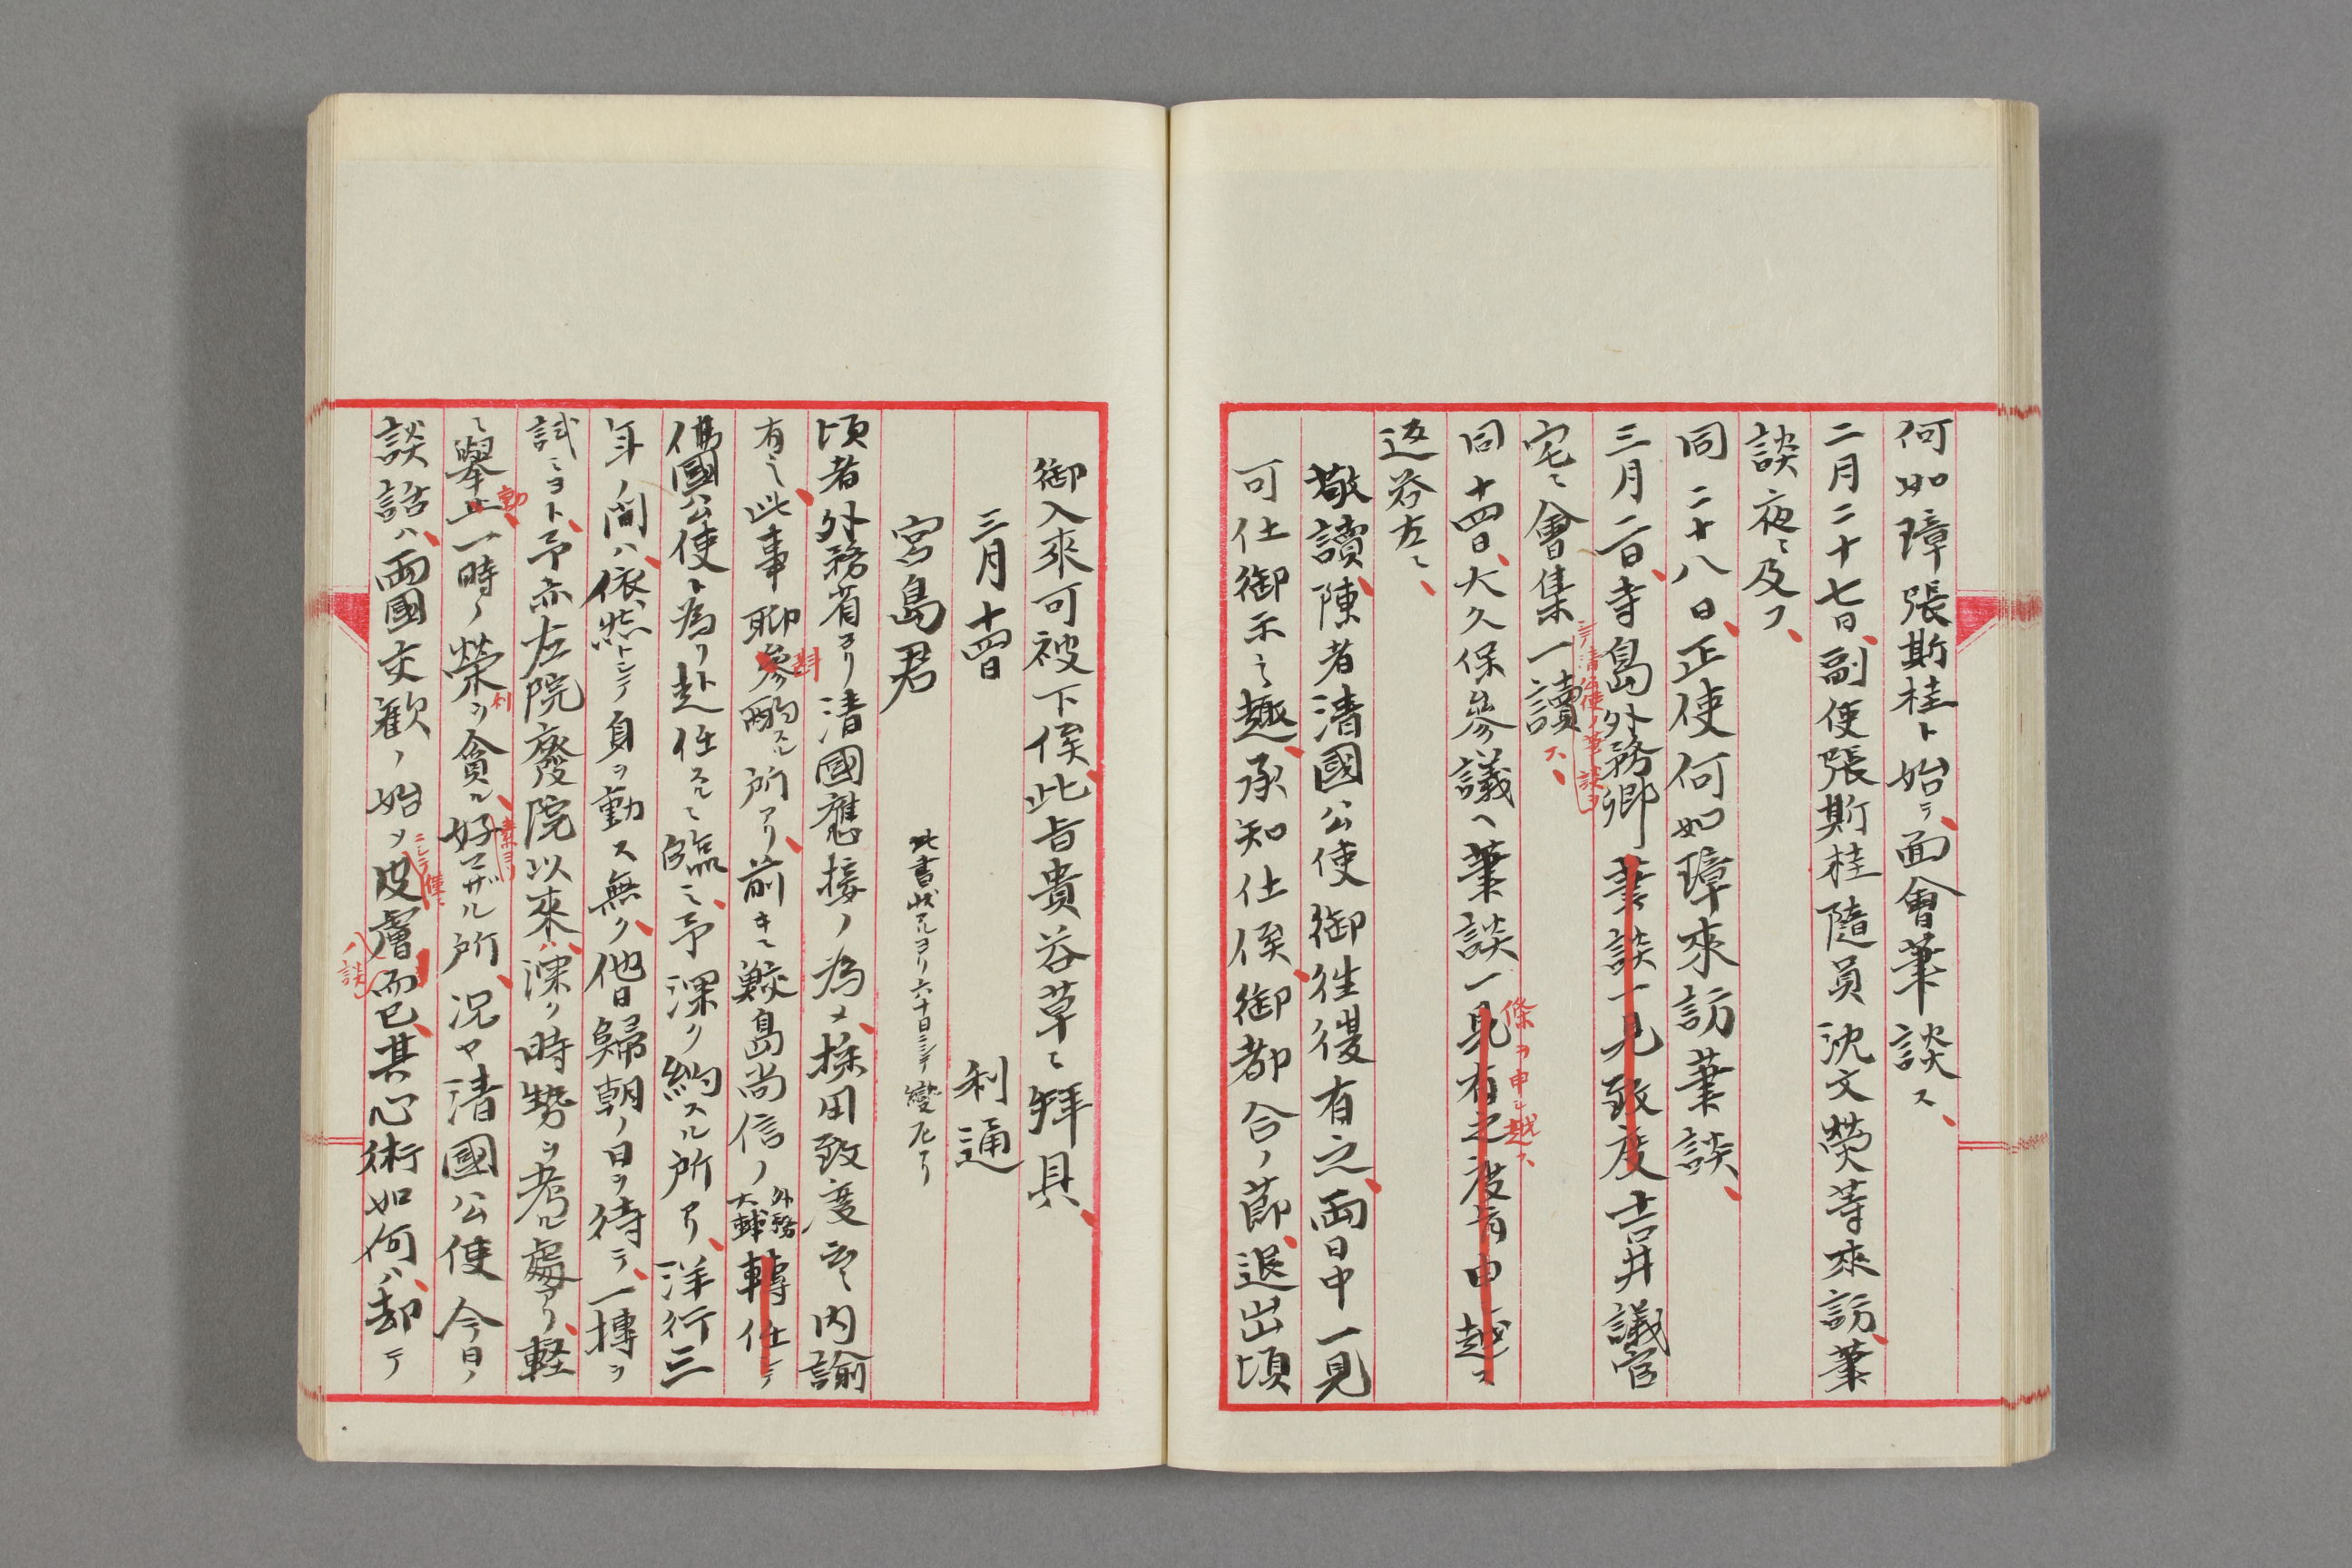 何如璋張斯桂ト始テ、面會筆談ス、
二月二十七日、副使張斯桂隨員沈文熒等來訪、筆
談夜ニ及フ、
同二十八日、正使何如璋來訪筆談、
三月二日、寺島外務卿筆談一見致度吉井議官
宅ニ會集一讀ス、
シテ清公使ノ筆談ヲ
同十四日、大久保參議ヘ筆談一見有之度旨申越ス
條ヲ申シ越ス、
返答左ニ、
敬讀、陳者清國公使御往復有之、両日中一見
可仕御示之趣、承知仕候、御都合ノ節、退出頃
御入來可被下候、此旨貴答草々拜具、
三月十四日
利通
宮島君
此書状アルヨリ六十日ニシテ變死アリ
頃者外務省ヨリ清國應接ノ為メ、採用致度云々内諭
有之、此事聊參酌スル所アリ、前キニ鮫島尚信ノ外務大輔轉任シテ
斟
佛國公使ト為リ赴任スルニ臨ミ、予深ク約スル所アリ、洋行三
年ノ間ハ、依然トシテ身ヲ動ス無ク、他日歸朝ノ日ヲ待テ、一摶ヲ
試ミヨト、予亦左院廢院以來ハ、深ク時勢ヲ考ル處アリ、軽
々擧止一時ノ榮ヲ貪ル、好マザル所、况ヤ清國公使今日ノ
動、
利
素ヨリ
談話ハ、両國交歡ノ始メ皮膚而已、其心術如何ハ、却テ
ニシテ僅ニ
ノ談